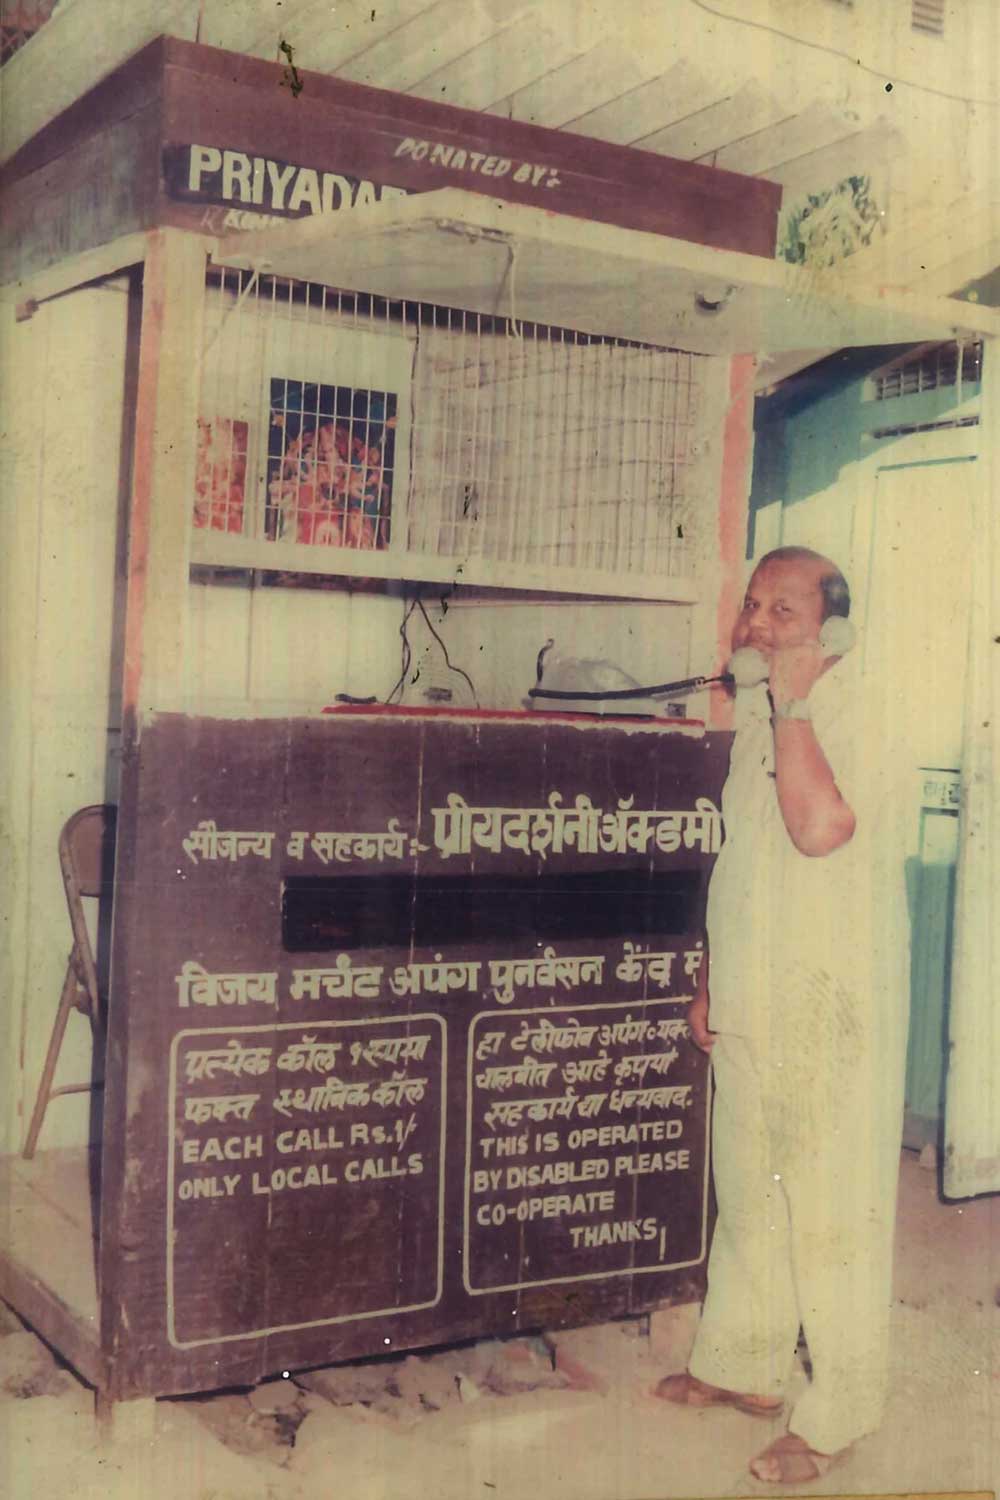 DONATED BY:-
PRIYADAR
सौजन्य व सहकार्य:- प्रीयदर्शनी ॲकडमी
विजय मर्चंट अपंग पुनर्वसन केंद्र मुं
प्रत्येक कॉल १ रुपया
फक्त स्थानिक कॉल
EACH CALL Rs.1/-
ONLY LOCAL CALLS
हा टेलीफोन अपंग व्यक्
चालवीत आहे कृपया
सहकार्य द्या धन्यवाद.
THIS IS OPERATED
BY DISABLED PLEASE
CO-OPERATE
THANKS!